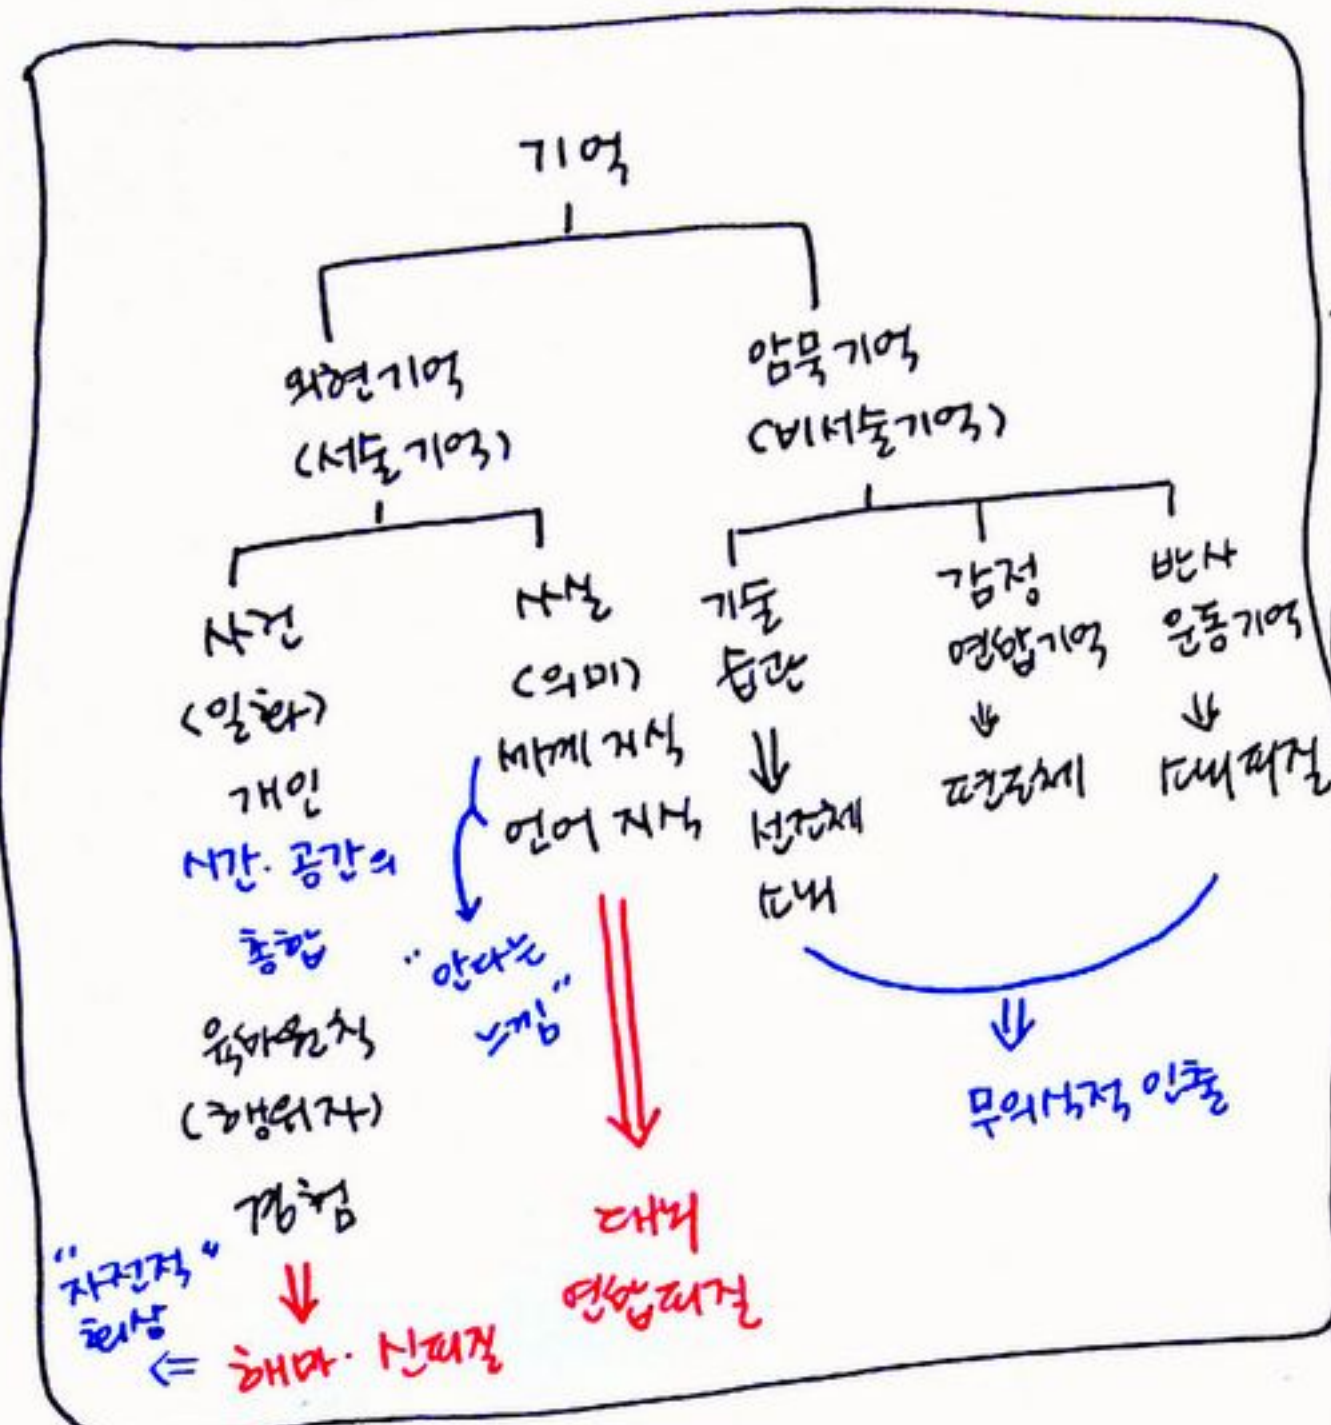 기억
외현기억
(서술기억)
암묵기억
(비서술기억)
사건
(일화)
개인
시간·공간의
총합
육하원칙
(행위자)
경험
"자전적"
회상
<= 해마·신피질
사실
(의미)
세계 지식
언어 지식
"안다는
느낌"
대뇌
연합피질
기술
습관
선조체
소뇌
감정
연합기억
편도체
반사
운동기억
소뇌피질
무의식적 인출